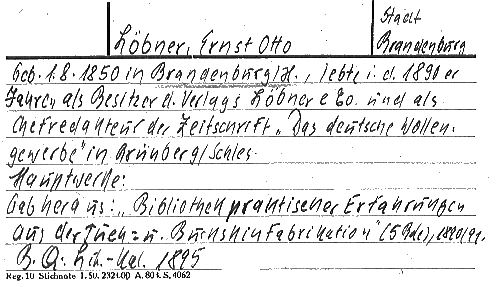 Stadt
Löbner, Ernst Otto Brandenburg
Geb. 1.8.1850 in Brandenburg/H., lebte i. d. 1890er
Jahren als Besitzer d. Verlags Löbner & Co. und als
Chefredakteur der Zeitschrift „Das deutsche Wollen-
gewerbe" in Grünberg/Schles.
Hauptwerke:
Gab heraus: „Bibliothek praktischer Erfahrungen
aus der Tuch- u. Buckskin Fabrikation" (5 Bde), 1890/91.
B. Q: Lit.-Kal. 1895
Reg. 10 Stichnote 1. 50. 2321.00 A. 804. S. 4062